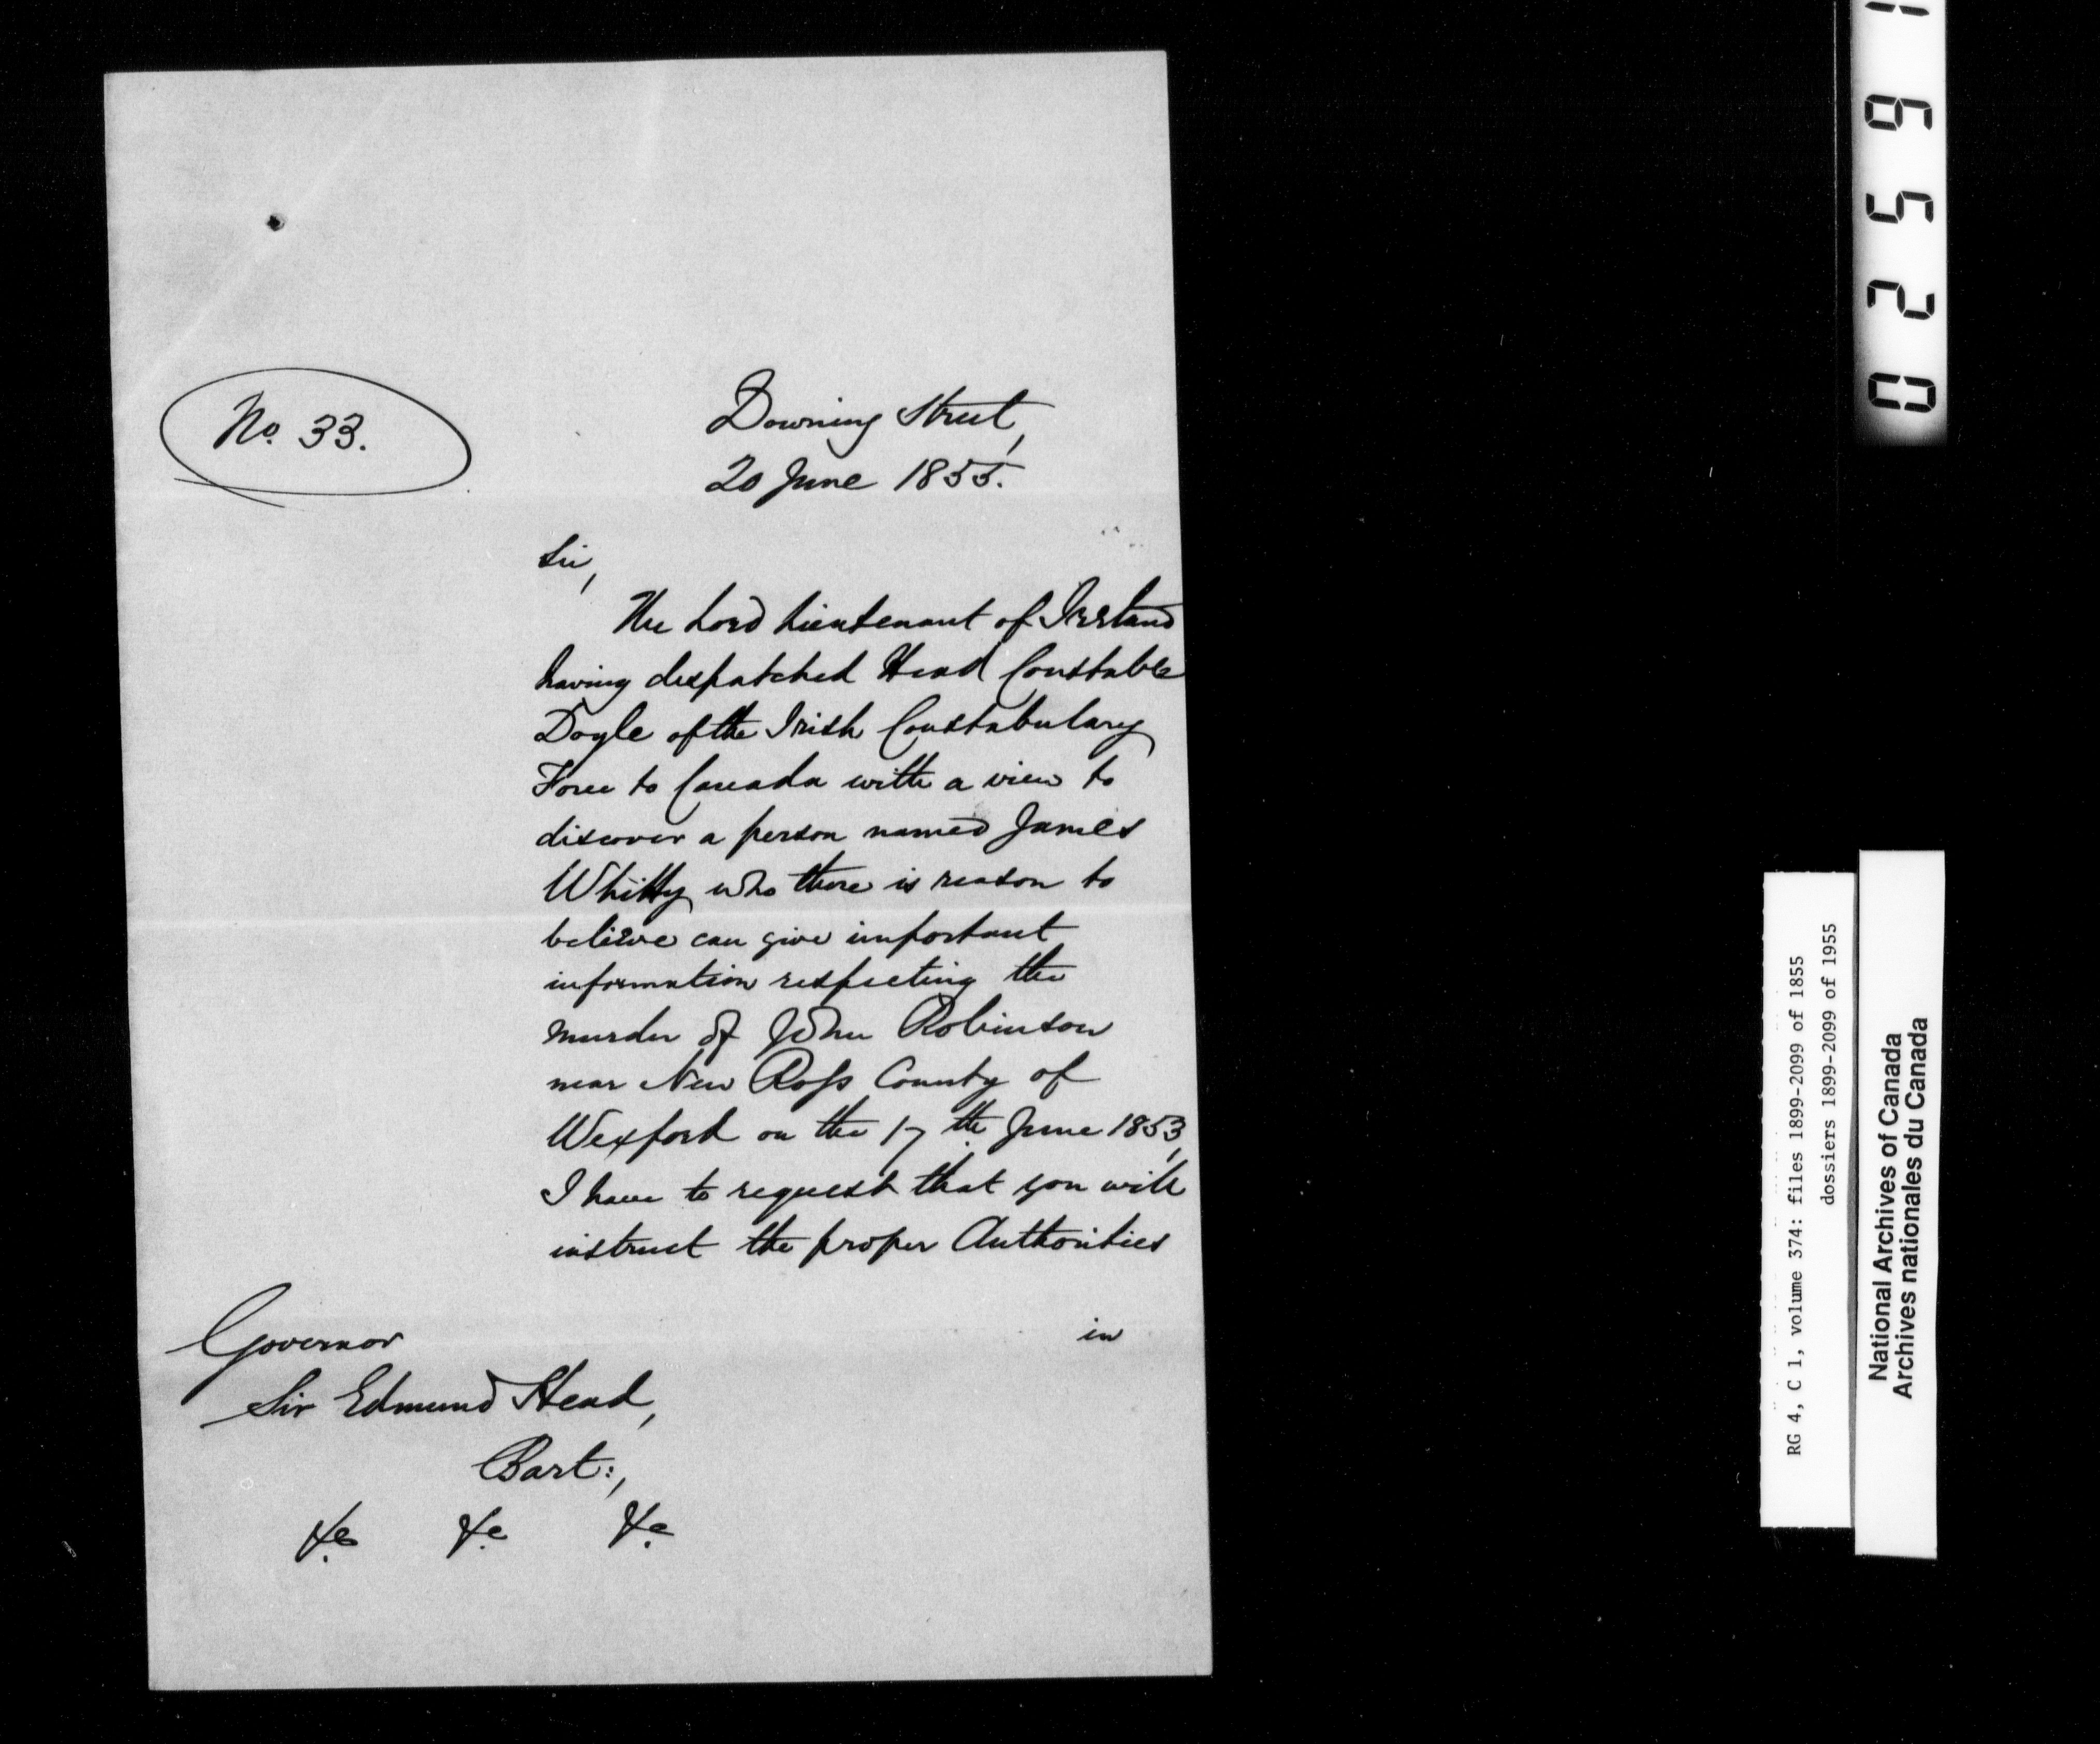 No. 33.
Downing Street,
20 June 1855.
Sir,
The Lord Lieutenant of Ireland
having despatched Head Constable
Doyle of the Irish Constabulary
Force to Canada with a view to
discover a person named James
Whitty who there is reason to
believe can give important
information respecting the
murder of John Robinson
near New Ross County of
Wexford on the 17th June 1853,
I have to request that you will
instruct the proper Authorities
in
Governor
Sir Edmund Head,
Bart:,
&c &c &c
02591
RG 4, C 1, volume 374: files 1899-2099 of 1855
dossiers 1899-2099 of 1955
National Archives of Canada
Archives nationales du Canada